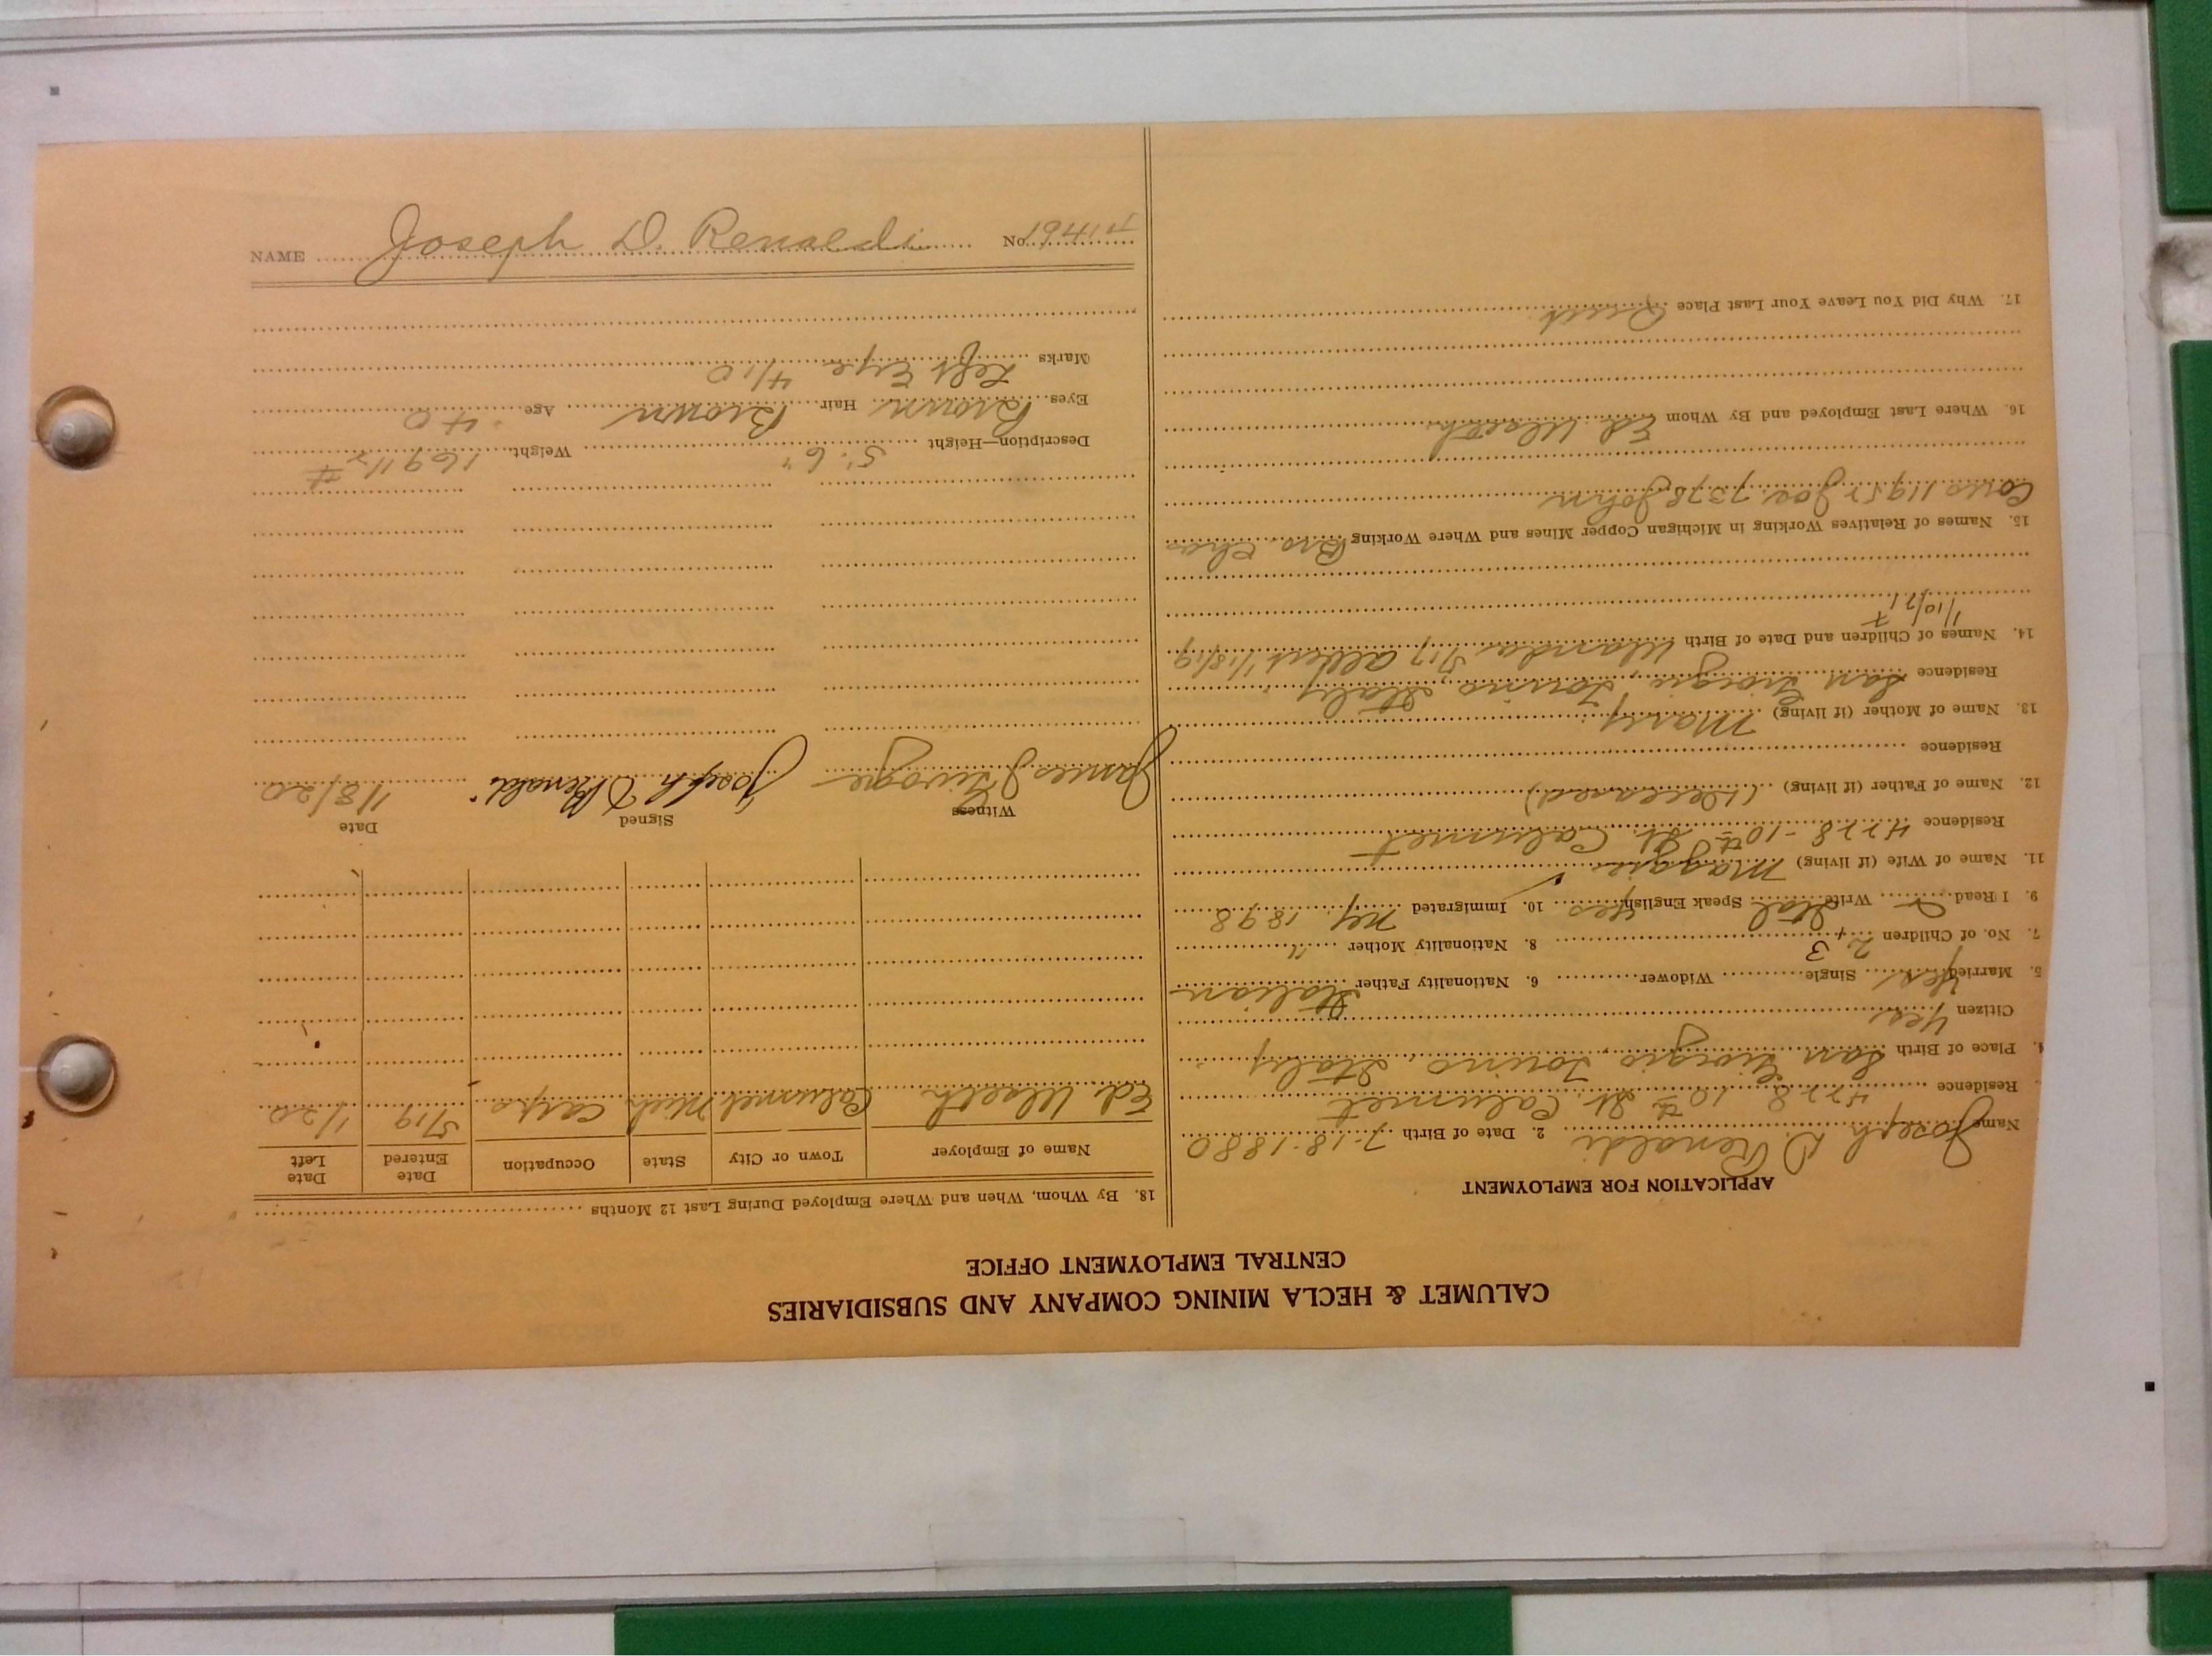 CALUMET & HECLA MINING COMPANY AND SUBSIDIARIES
CENTRAL EMPLOYMENT OFFICE
APPLICATION FOR EMPLOYMENT
Name Joseph D. Renaldi 2. Date of Birth 7-18-1880
Residence 4228 10th St. Calumet
4. Place of Birth San Giorgio, Torino, Italy
Citizen Yes
5. Married Yes Single Widower 6. Nationality Father Italian
7. No. of Children 2 3 8. Nationality Mother "
9. I Read Write Ital Speak English Yes 10. Immigrated NY. 1898
11. Name of Wife (if living) Maggie
Residence 4228-10th St. Calumet
12. Name of Father (if living) (Deceased)
Residence
13. Name of Mother (if living) Mary
Residence San Giorgio, Torino, Italy
14. Names of Children and Date of Birth Wanda 5/17 Albert 1/18/19
1/10/21
15. Names of Relatives Working in Michigan Copper Mines and Where Working Bro. Chas
Cous 11952 Joe 7378 John
16. Where Last Employed and By Whom Ed. Ulseth
17. Why Did You Leave Your Last Place Quit
18. By Whom, When and Where Employed During Last 12 Months
Name of Employer Town or City State Occupation Date Entered Date Left
Ed. Ulseth Calumet Mich Carp 5/19 1/20
Witness Signed Date
James Joseph D Renaldi 1/8/20
Description—Height 5'.6" Weight 169 1/2 #
Eyes Brown Hair Brown Age 40
Marks Left Eye 4/10
NAME Joseph D. Renaldi No.